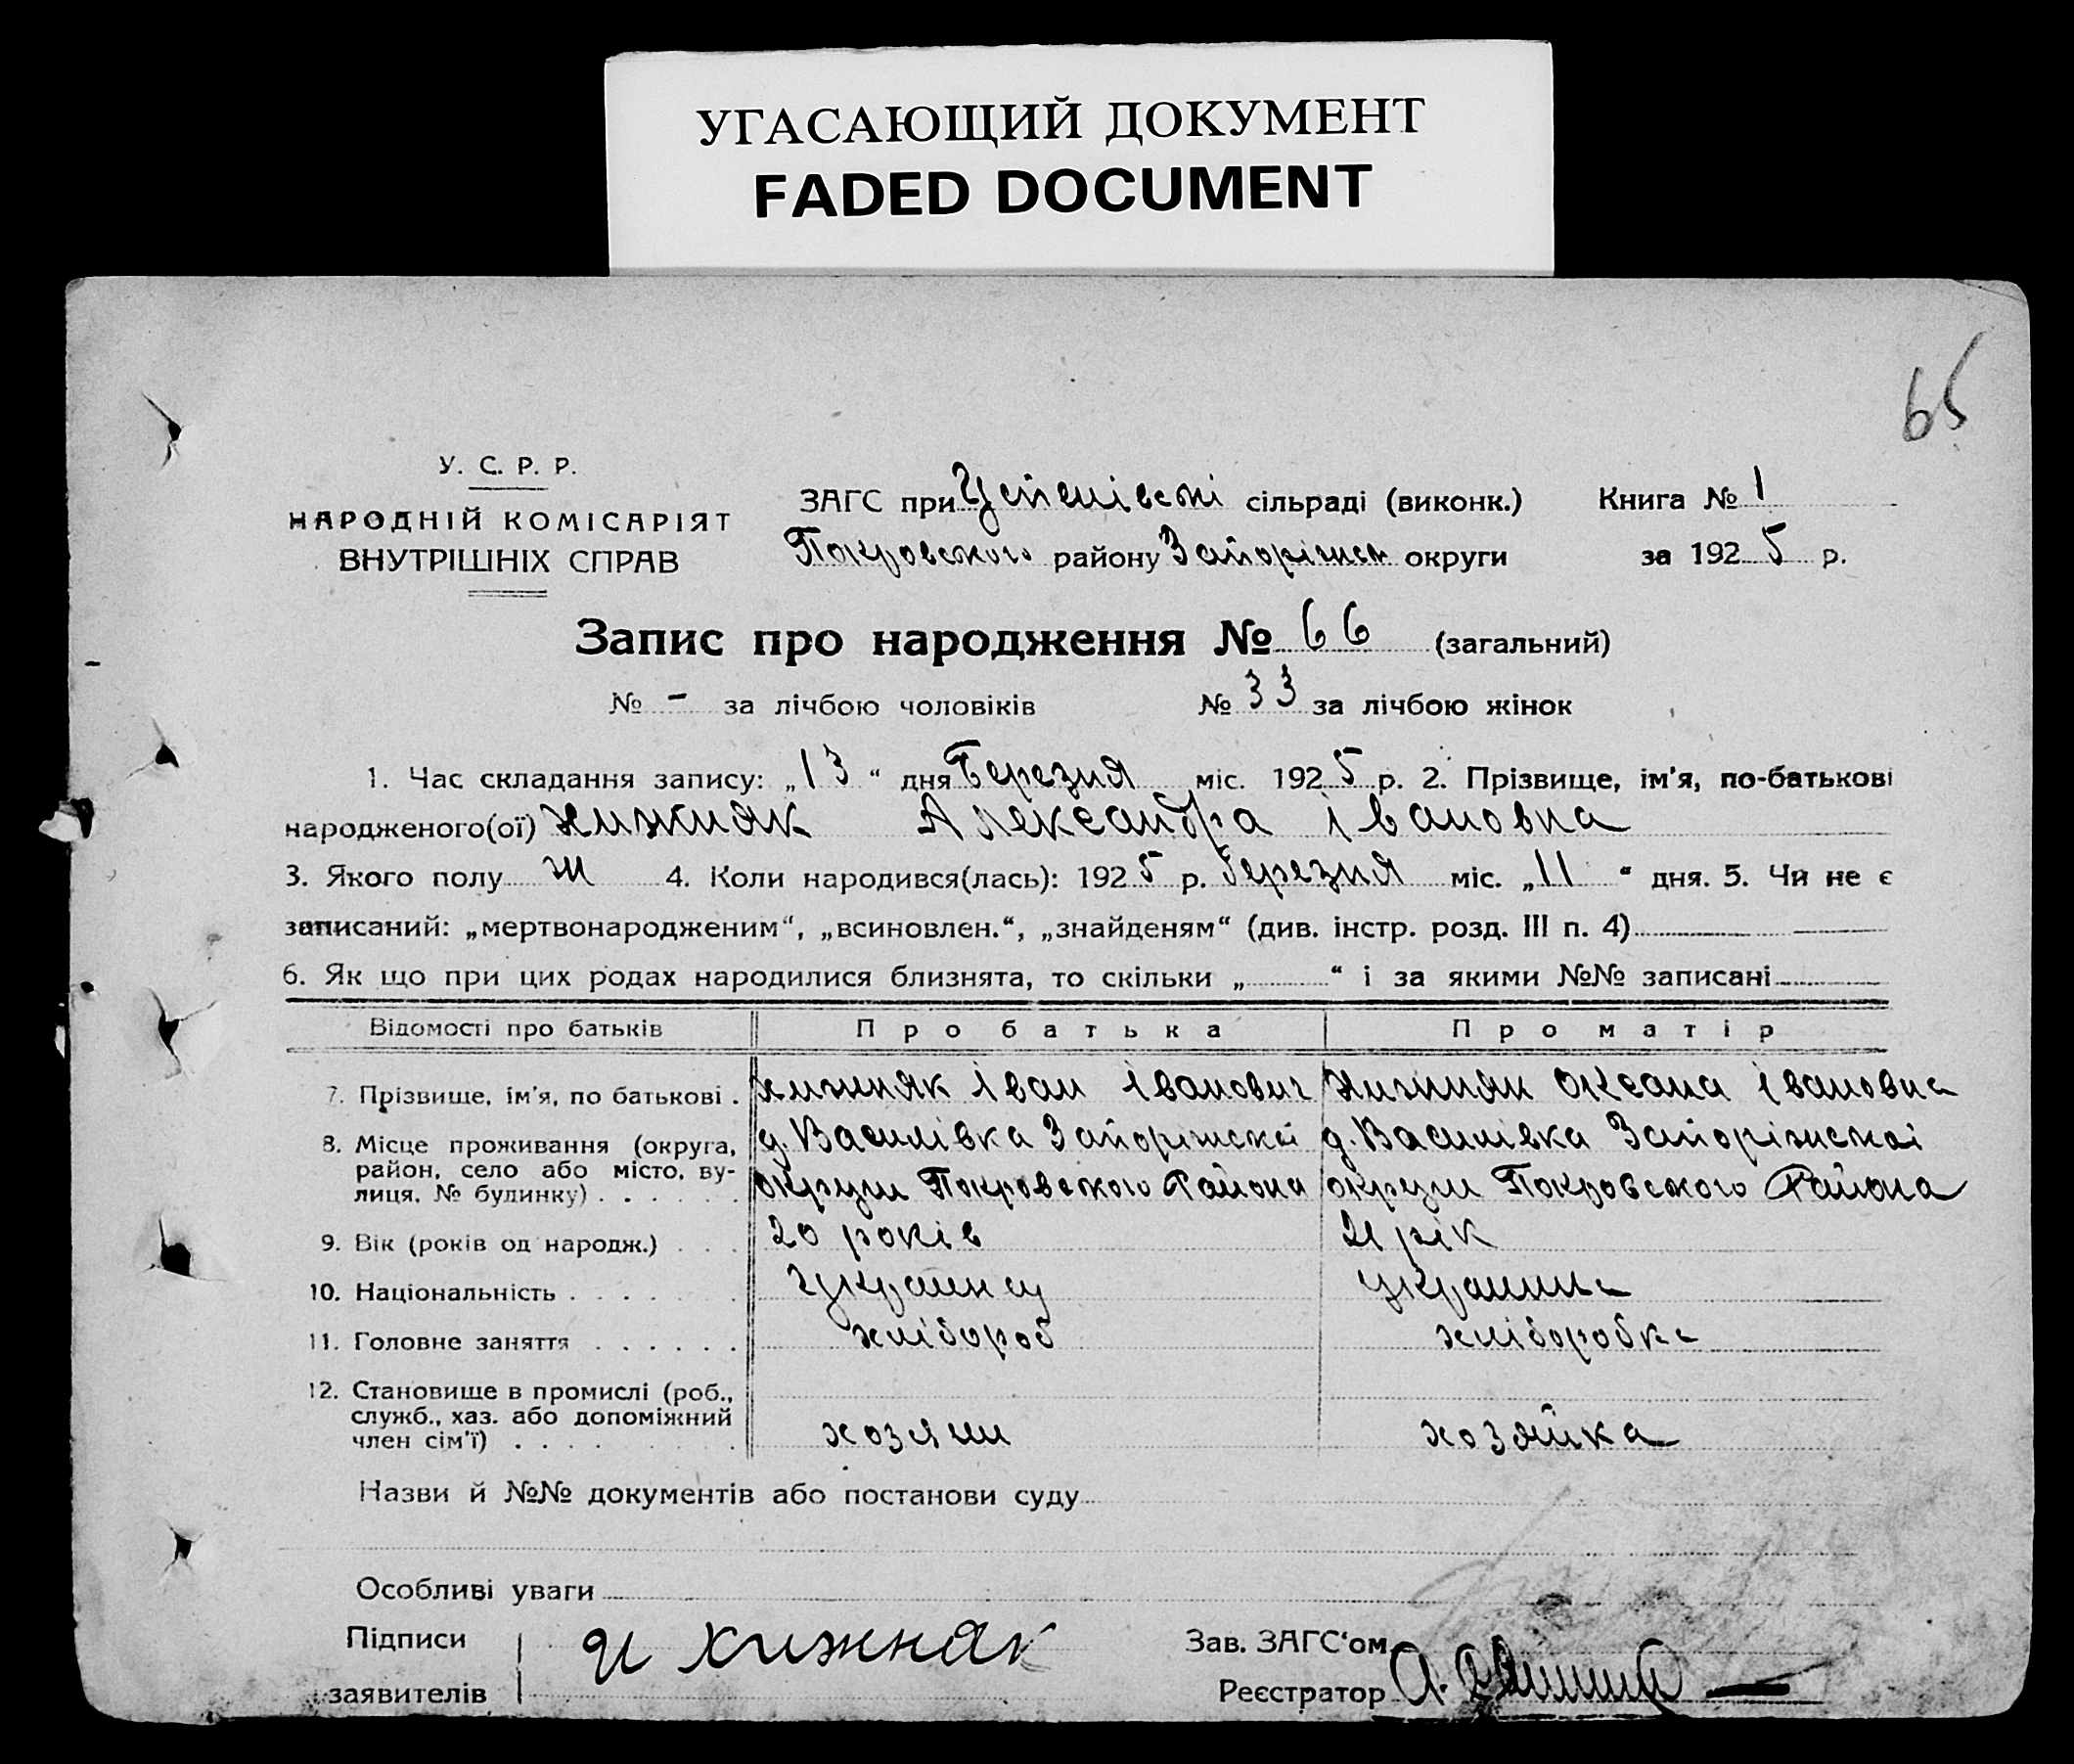 УГАСАЮЩИЙ ДОКУМЕНТ
FADED DOCUMENT
65
У. С. Р. Р.
НАРОДНІЙ КОМІСАРІЯТ
ВНУТРІШНІХ СПРАВ
ЗАГС при Успенівскі сільраді (виконк.) Книга № 1
Покровського району Запоріжск округи за 1925 р.
Запис про народження № 66 (загальний)
№ - за лічбою чоловіків № 33 за лічбою жінок
1. Час складання запису: „13“ дня Березня міс. 1925 р. 2. Прізвище, ім'я, по-батькові
народженого(ої) Хижняк Александра Івановна
3. Якого полу ж 4. Коли народився(лась): 1925 р. березня міс. „11“ дня. 5. Чи не є
записаний: „мертвонародженим“, „всиновлен.“, „знайденям“ (див. інстр. розд. III п. 4)
6. Як що при цих родах народилися близнята, то скільки „ “ і за якими №№ записані
Відомості про батьків Про батька Про матір
7. Прізвище, ім'я, по батькові . Хижняк Іван Іванович Хижняк Оксана Івановна
8. Місце проживання (округа, район, село або місто, вулиця, № будинку) . . . . . . д. Василівка Запоріжскої округи Покровского Района д. Василівка Запоріжскої округи Покровского Района
9. Вік (років од народж.) . . . 20 років 21 рік
10. Національність . . . . . . . Украинец украинка
11. Головне заняття . . . . . . хлібороб хліборобка
12. Становище в промислі (роб., служб., хаз. або допоміжний член сім'ї) . . . . хозяин хозяйка
Назви й №№ документів або постанови суду
Особливі уваги
Підписи заявителів И Хижняк
Зав. ЗАГС'ом
Реєстратор